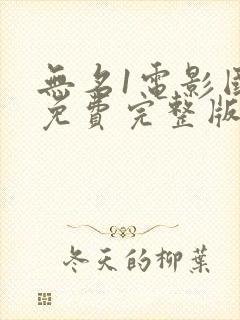 無名1電影國
免費完整版
冬天的柳葉